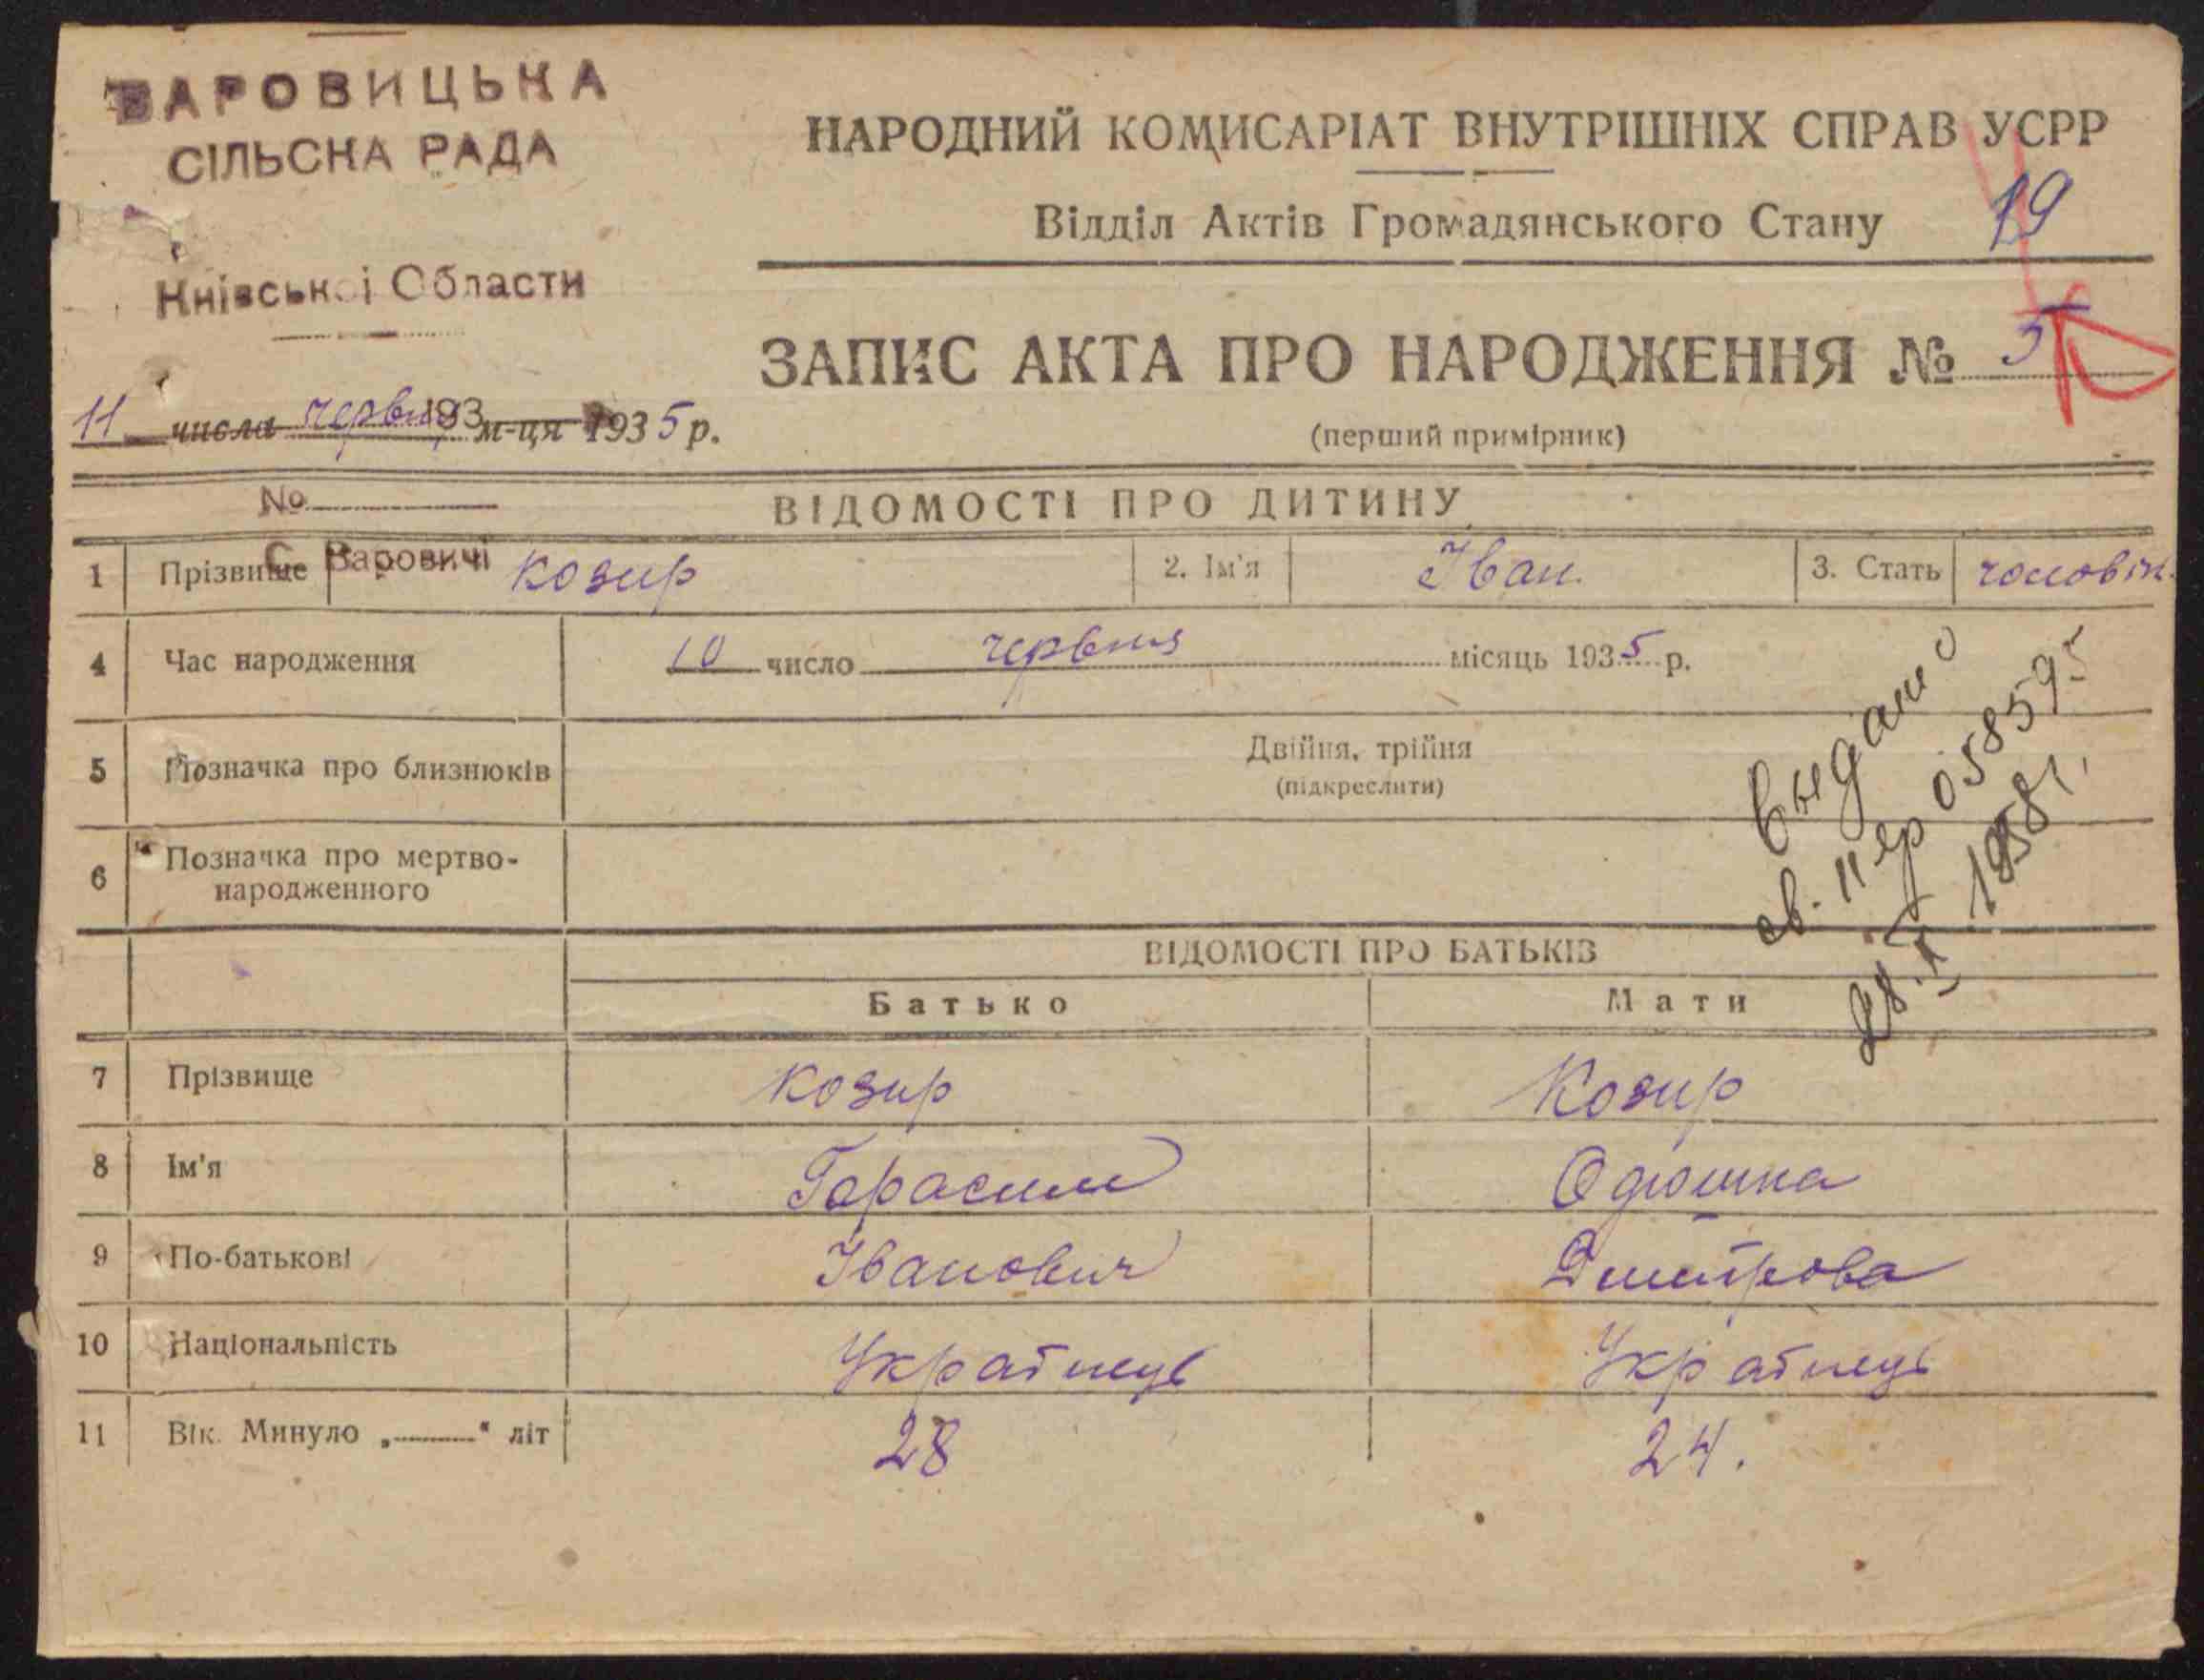 ВАРОВИЦЬКА
СІЛЬСКА РАДА
Київської Области
НАРОДНИЙ КОМИСАРІАТ ВНУТРІШНІХ СПРАВ УСРР
Відділ Актів Громадянського Стану 19
ЗАПИС АКТА ПРО НАРОДЖЕННЯ № 5
(перший примірник)
11 числа червня 193 м-ця 1935 р.
№
С. Варовичі
ВІДОМОСТІ ПРО ДИТИНУ
1 Прізвище Козир 2. Ім'я Іван 3. Стать чоловіч.
4 Час народження 10 число червня місяць 1935 р.
5 Позначка про близнюків Двійня, трійня
(підкреслити)
6 Позначка про мертво-
народженного
выдано
св. 058595
1958г.
ВІДОМОСТІ ПРО БАТЬКІВ
Батько Мати
7 Прізвище Козир Козир
8 Ім'я Гарасим
9 По-батькові Іванович Дмитрова
10 Національність Українець Українець
11 Вік. Минуло „ “ літ 28 24.